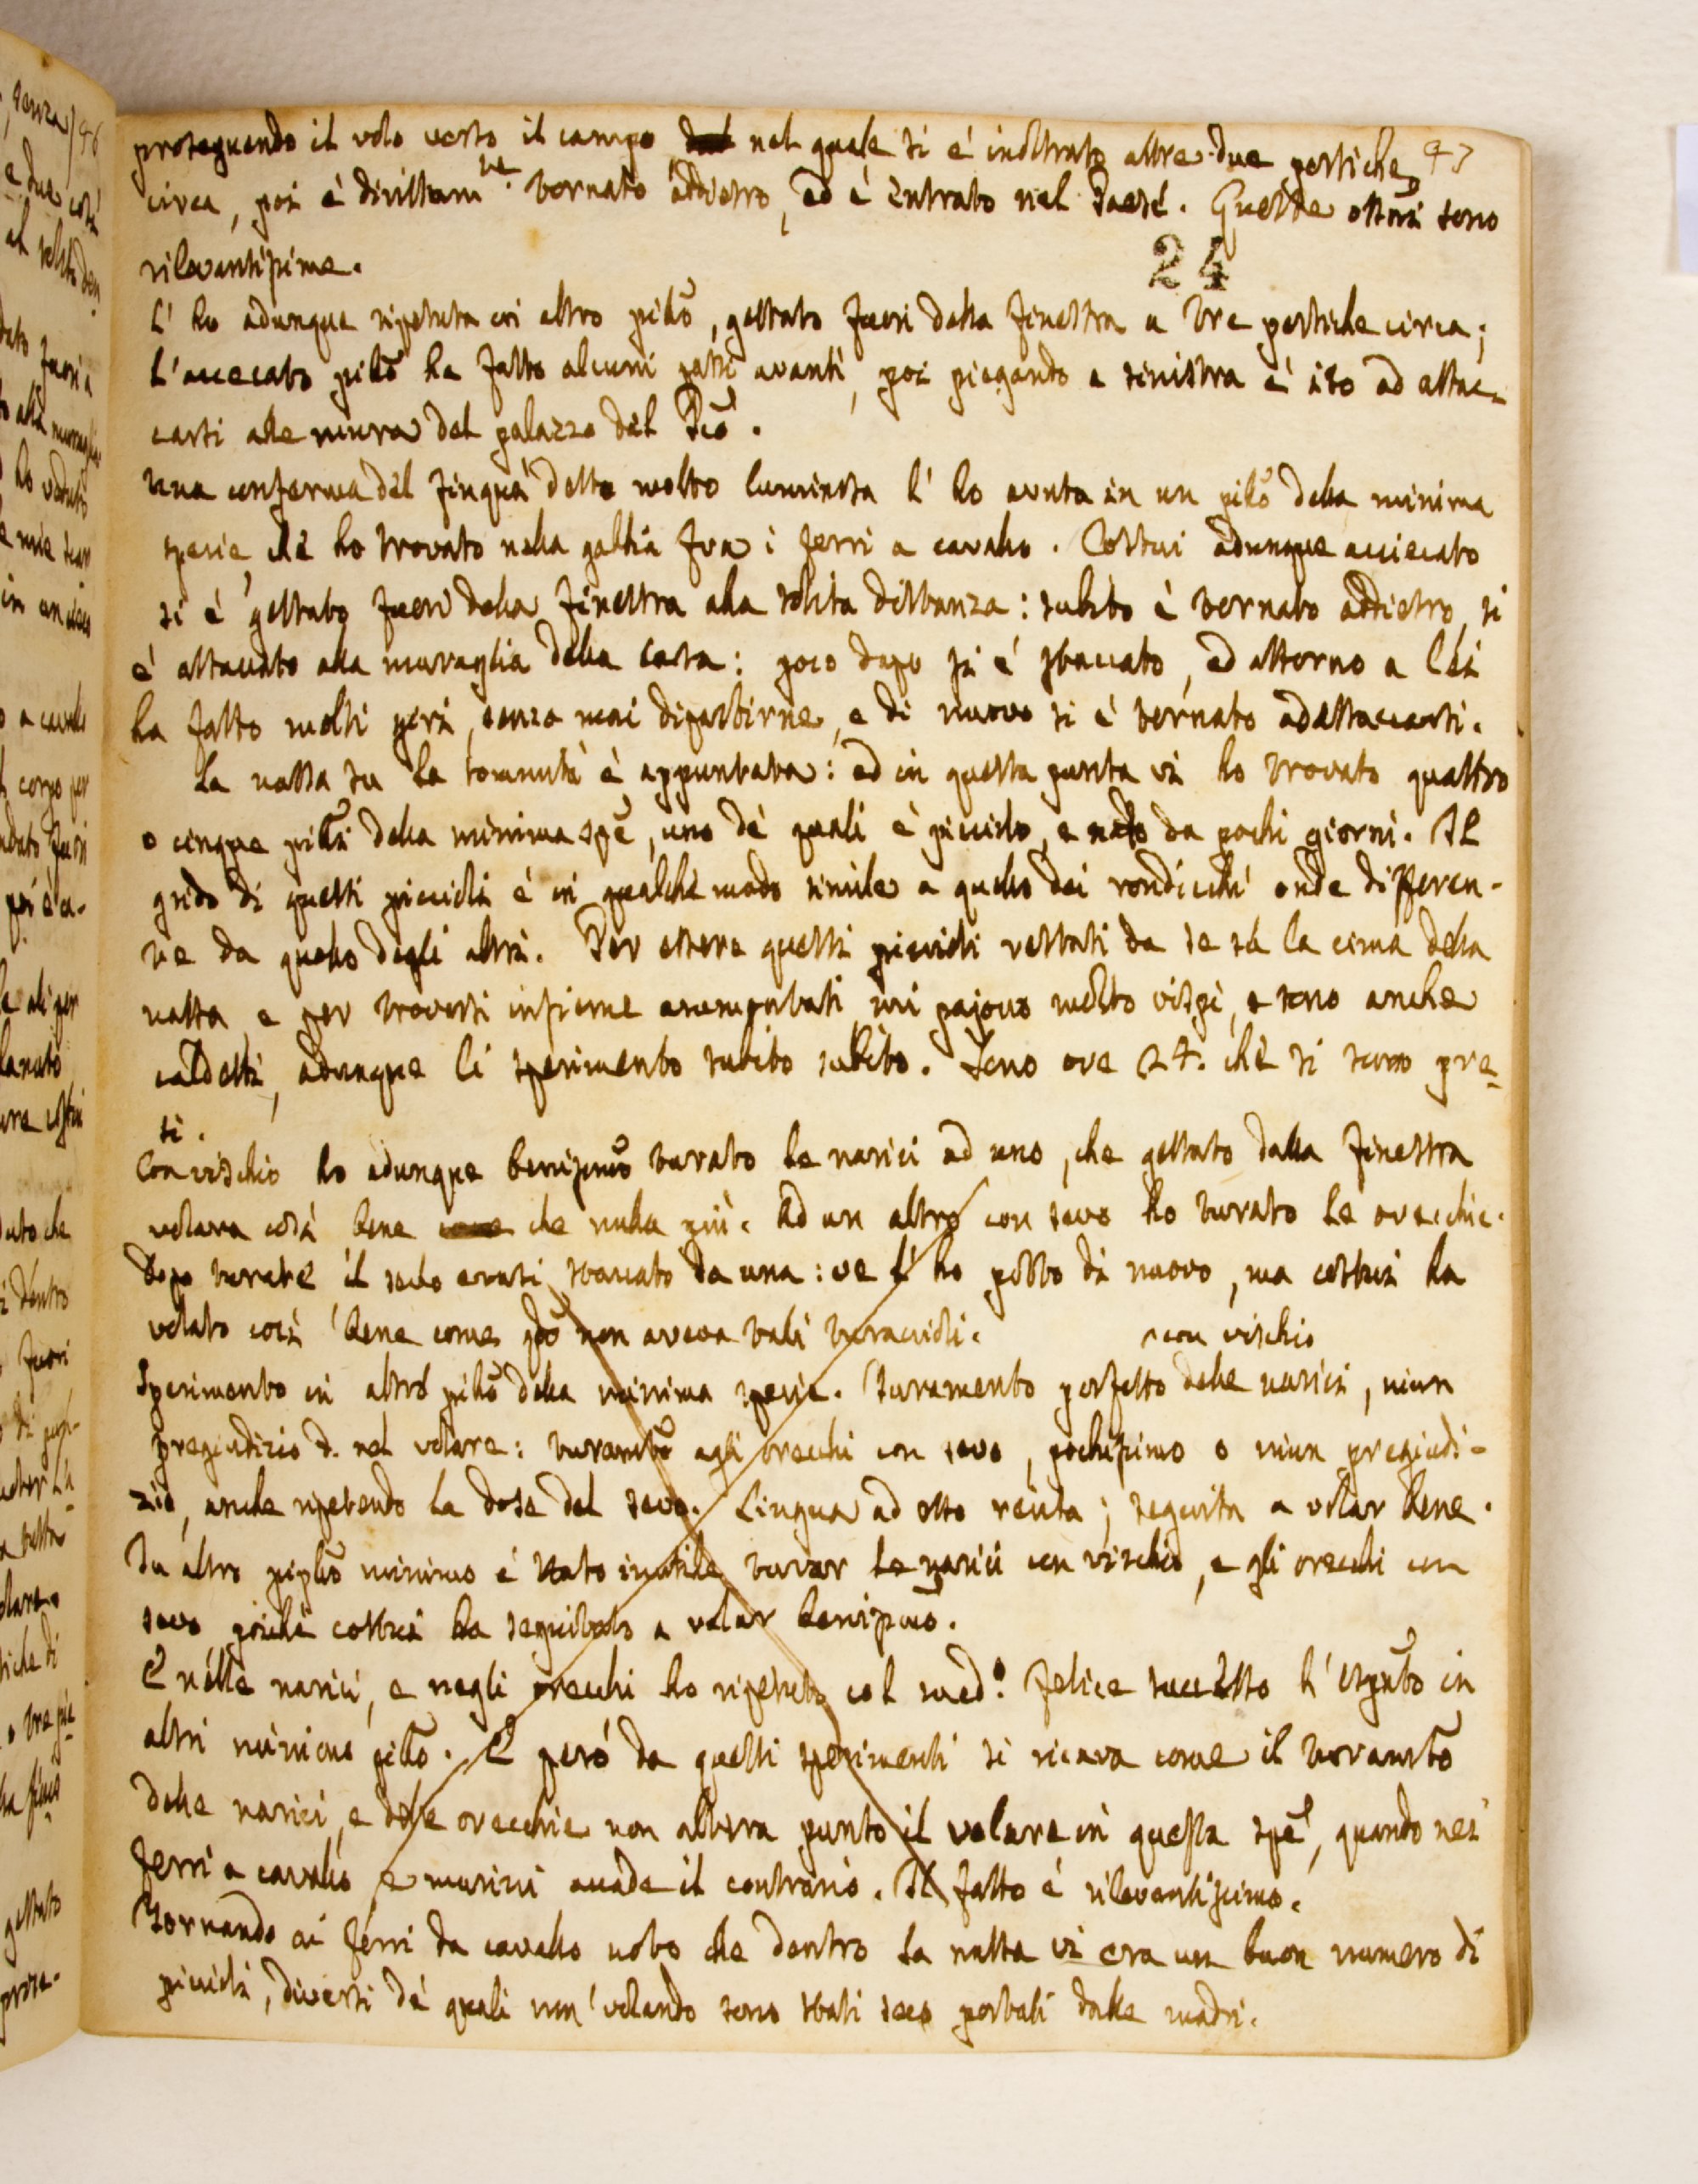 proseguendo il volo verso il campo nel quale si è inoltrato altre due pertiche 47
circa, poi è dirittam.te tornato addietro, ed è entrato nel Paese. Queste sono
24
rilevantissime.
L' ho adunque ripetuta in altro pillõ, gettato fuori dalla finestra a tre pertiche circa;
l'accecato pillõ ha fatto alcuni passi avanti, poi piegando a sinistra è ito ad attac-
carsi alle mura del palazzo del
Una conferma del finquà detto molto luminosa l' ho avuta in un pillõ della minima
spezie, che ho trovato nella gabbia fra i ferri a cavallo. Costui adunque acciecato
si è gettato fuori della finestra alla solita distanza: subito è tornato addietro, si
è attaccato alla muraglia della casa: poco dopo si è sbaccato, ed attorno a lei
ha fatto molti giri, senza mai dipartirne, e di nuovo si è tornato ad attaccarsi.
La nassa su la sommità è appuntata: ed in questa punta vi ho trovato quattro
o cinque pillĩ della minima spẽ, uno de' quali è picciolo, e nato da pochi giorni. Il
grido di questi piccioli è in qualche modo simile a quello dei rondicchi onde differen-
te da quello degli altri. Per essere questi piccioli restati da se su la cima della
nassa e per trovarsi insieme mi pajono molto vispi, e sono anche
caldetti, adunque li sperimento subito subito. Sono ore 24. che si sono pre-
si.
Con vischio ho adunque benissimõ turato le narici ad uno, che gettato dalla finestra
volava così bene che nulla più. Ad un altro con sevo ho turato le orecchie.
Dopo turate il sevo erasi staccato da una: ve l' ho posto di nuovo, ma costui ha
volato così bene come qdõ non aveva tali turaccioli.
con vischio
Sperimento in altro pillõ della minima spezie. Turamento perfetto delle narici, niun
pregiudizio d. nel volare: turamtõ agli orecchi con sevo, pochissimo o niun pregiudi-
zio, anche ripetendo la dose del sevo. Lingua ad otto recisa; seguita a volar bene.
In altro piplõ minimo è stato inutile turar le narici con vischio, e gli orecchi con
sevo poichè costui ha seguitato a volar benissimõ.
E nelle narici, e negli orecchi ho ripetuto col med.o felice successo l' in
altri minimi pillõ. E però da questi sperimenti si ricava come il turamtõ
delle narici, e delle orecchie non altera punto il volare in questa spẽ, quando nei
ferri a cavallo e murini accade il contrario. Il fatto è rilevantissimo.
Tornando ai ferri da cavallo noto che dentro la nassa vi era un buon numero di
piccioli, diversi de' quali non volando sono stati seco portati dalle madri.